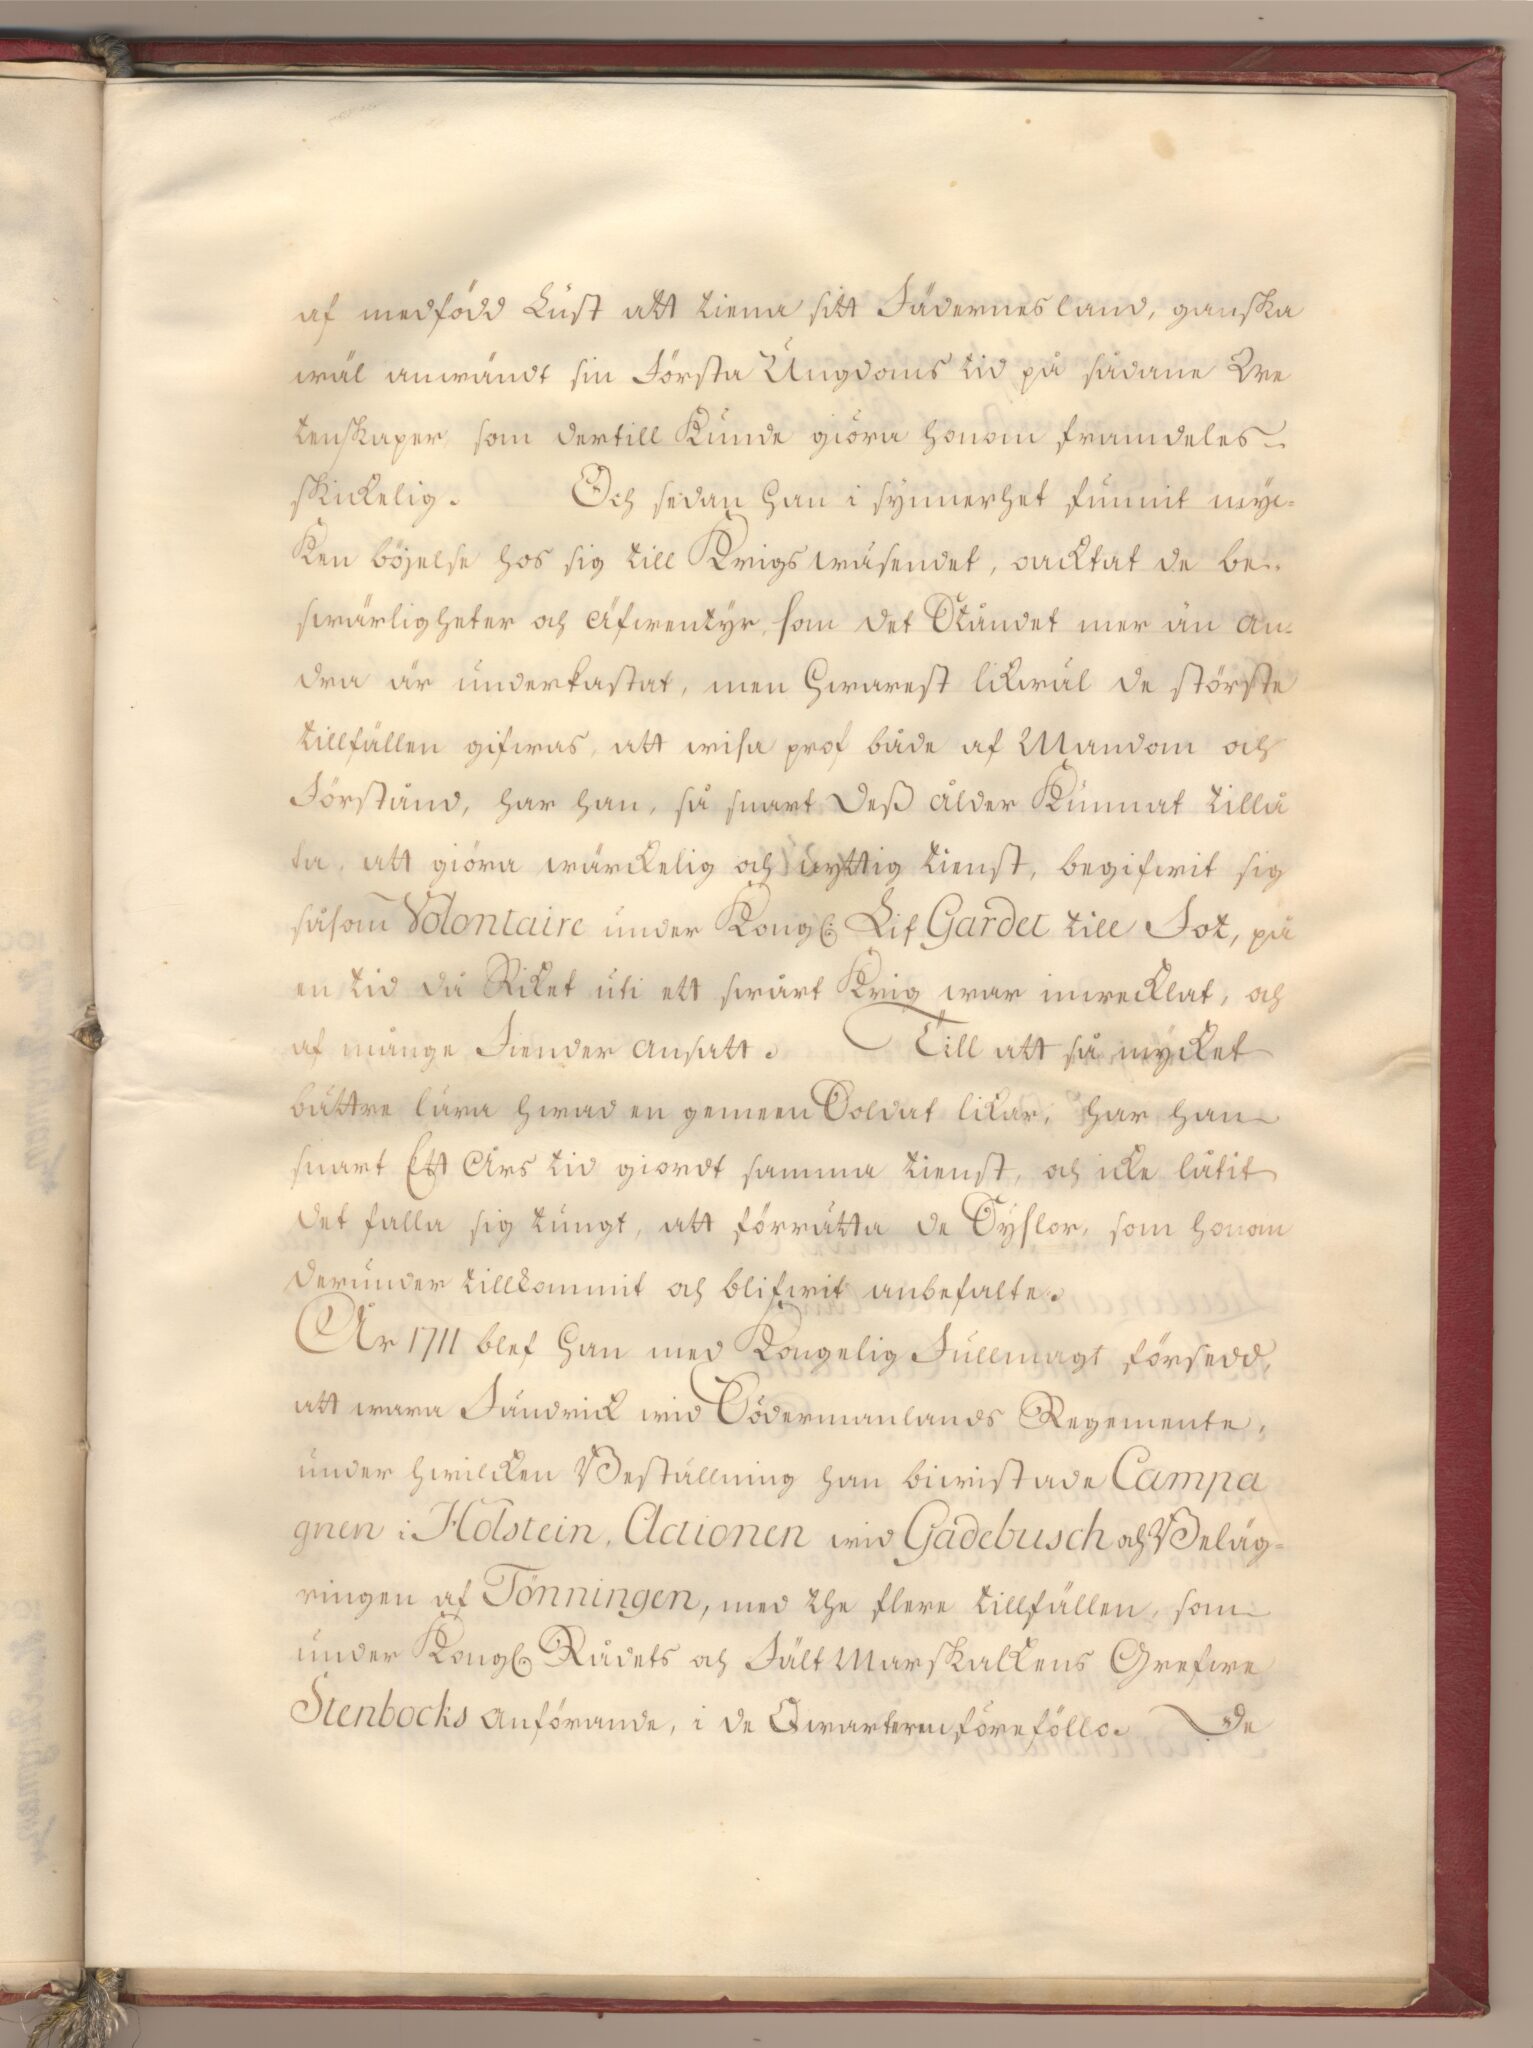 af medfödd Lust att tiena sitt Fädernesland, ganska
wäl anwändt sin Första Ungdoms tid på sådane We
tenskaper som dertill Kunde giöra honom framdeles
skickelig. Och sedan Han i synnerhet funnit myc-
Ken böjelse hos sig till Krigswäsendet, oacktat de be-
swärligheter och Äfwentyr, som det Ståndet mer än An-
dra är underkastat, men Hwarest likwäl de störste
tillfällen gifwas, att wisa prof både af Mandom och
Förstånd, har han, så snart Deß ålder Kunnat tillå
ta, att giöra würckelig och nyttig tienst, begifwit sig
såsom Volontaire under Kongl: Lif Gardet till Fot, på
en tid då Riket uti ett swårt Krig war inwecklat, och
af månge Fiender Ansatt. Till att så mycket
bättre lära hwad en gemeen Soldat likar, har han
snart Ett Års tid giordt samma tienst, och icke låtit
det falla sig tungt, att förrätta de Syslor, som honom
derunder tillkommit och blifwit anbefalte.
År 1711 blef Han med Kongelig Fullmagt försedd,
att wara Fändrick wid Södermanlands Regemente,
under hwilcken Beställning han biwistade Campa
gnen i Holstein, Actionen wid Gadebusch och Beläg-
ringen af Tönningen, med the flere tillfällen, som
under Kongl. Rådets och FältMarskalckens Grefwe
Stenbocks Anförande, i de Qwarteren föreföllo. De